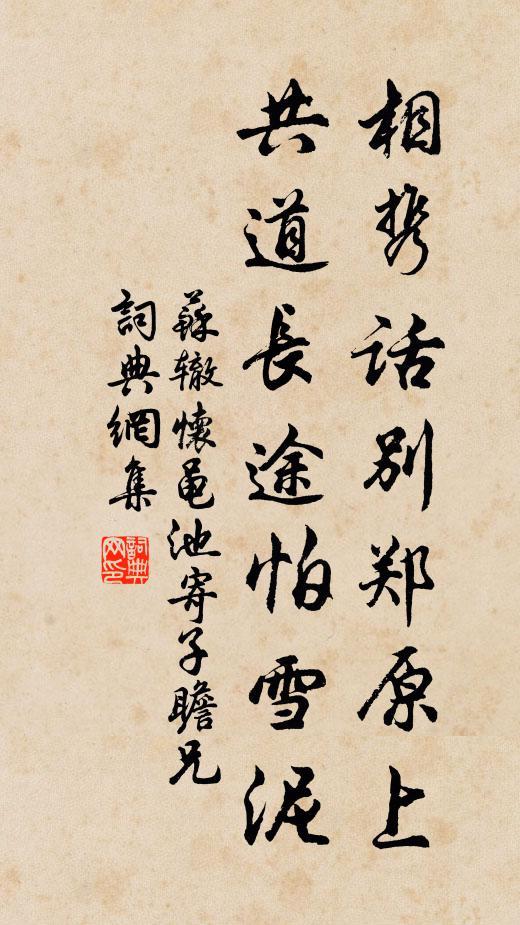 相携话别郑原上
共道長途怕雪泥
蘇辙懷黾池寄子瞻兄
詞典網集
詞典网印